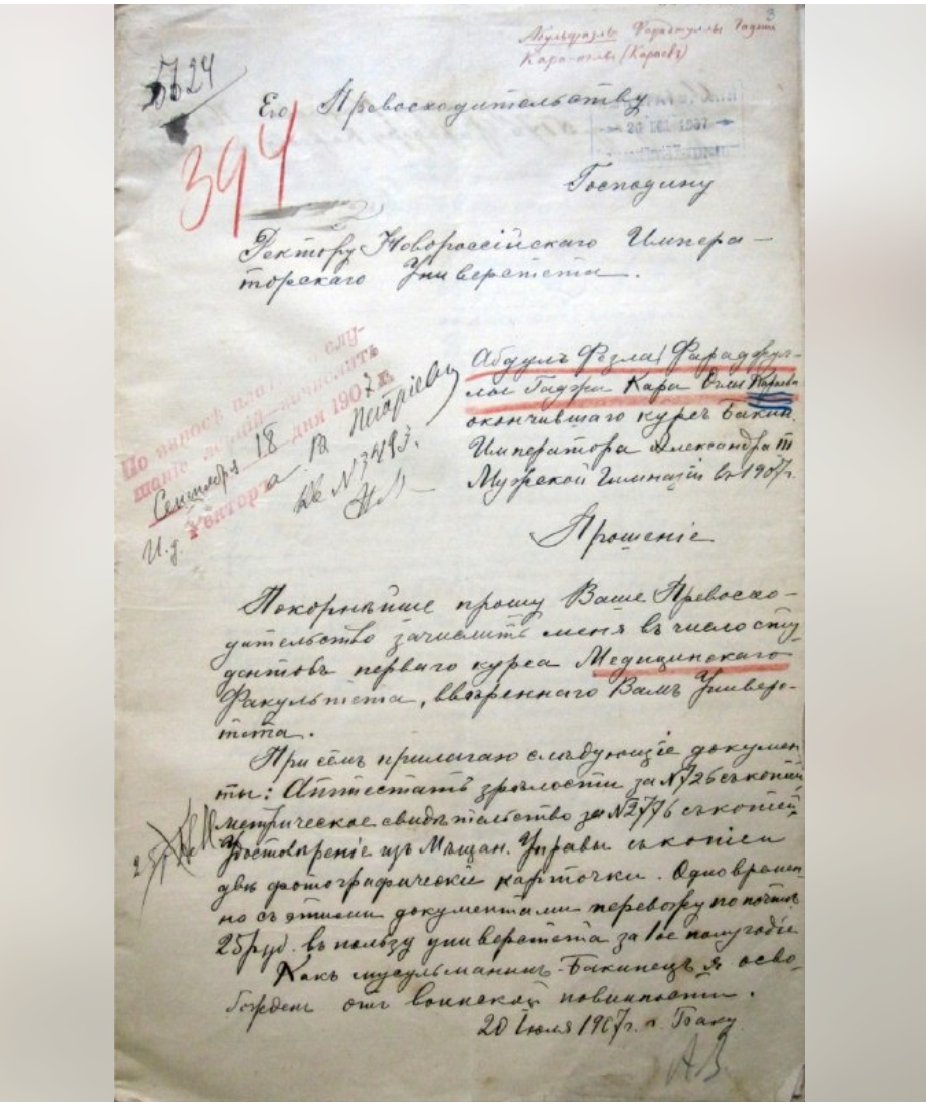 3
Абульфазлъ Фараджулла Гаджи
Кара-оглы (Караевъ)
5624
Его Превосходительству
394
26 1907
Господину
Ректору Новороссійскаго Импера-
торскаго Университета.
По взносѣ платы за слу-
шаніе лекцій зачислить
Сентября 18 дня 1907 г.
И. д. Ректора
№ 3493.
Абдулъ Фэзла Фараджул-
лы Гаджи Кара Оглы Караева
окончившаго курсъ Бакин.
Императора Александра III
Мужской Гимназіи въ 1907 г.
Прошеніе
Покорнѣйше прошу Ваше Превосхо-
дительство зачислить меня въ число сту
дентовъ перваго курса Медицинскаго
Факультета, ввѣреннаго Вамъ Универс-
тета.
При семъ прилагаю слѣдующіе докумен
ты: Аттестатъ зрѣлости за № 726 съ копіей
метрическое свидѣтельство за № 2776 съ копіей,
Удостовѣреніе изъ Мѣщан. Управы съ копіей
двѣ фотографическіе карточки. Одновремен
но съ этими документами перевожу по почтѣ
25 руб. въ пользу университета за 1ое полугодіе
Какъ мусульманинъ-Бакинецъ я осво-
божденъ отъ воинской повинности.
20 Іюля 1907 г. г. Баку